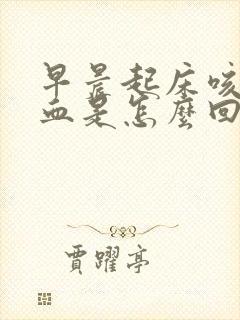 早晨起床咳
血是怎麼回
賈躍亭